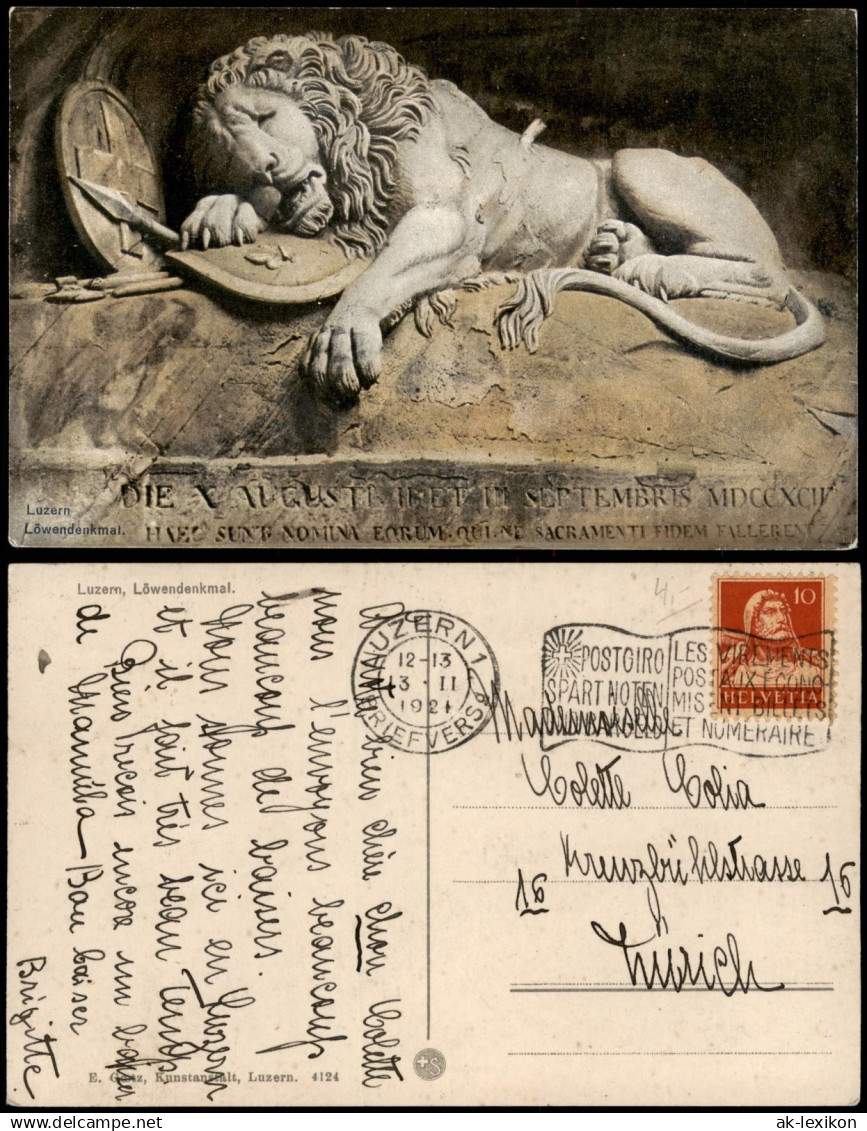 DIE X AUGUSTI II ET III SEPTEMBRIS MDCCXCII
HAEC SUNT NOMINA EORUM, QUI NE SACRAMENTI FIDEM FALLERENT
Luzern
Löwendenkmal.
Luzern, Löwendenkmal.
A bien chère chou Colette
nous l'envoyons beaucoup
beaucoup de baisers.
Nous sommes ici en Luzern
et il fait très beau Temps
Bien reçois encore un baiser
de
Bau baiser
Brigitte.
LUZERN 1
12-13
3·II
1921
BRIEFVERS.
POSTGIRO
SPART NOTEN
LES VIREMENTS
POSTAUX ÉCONO
MISENT BILLETS
ET NUMERAIRE
10
HELVETIA
4.-
Mademoiselle
Colette Colia
Kreuzbühlstrasse
16 16
Zürich
E. Goetz, Kunstanstalt, Luzern. 4124
+S
ak-lexikon